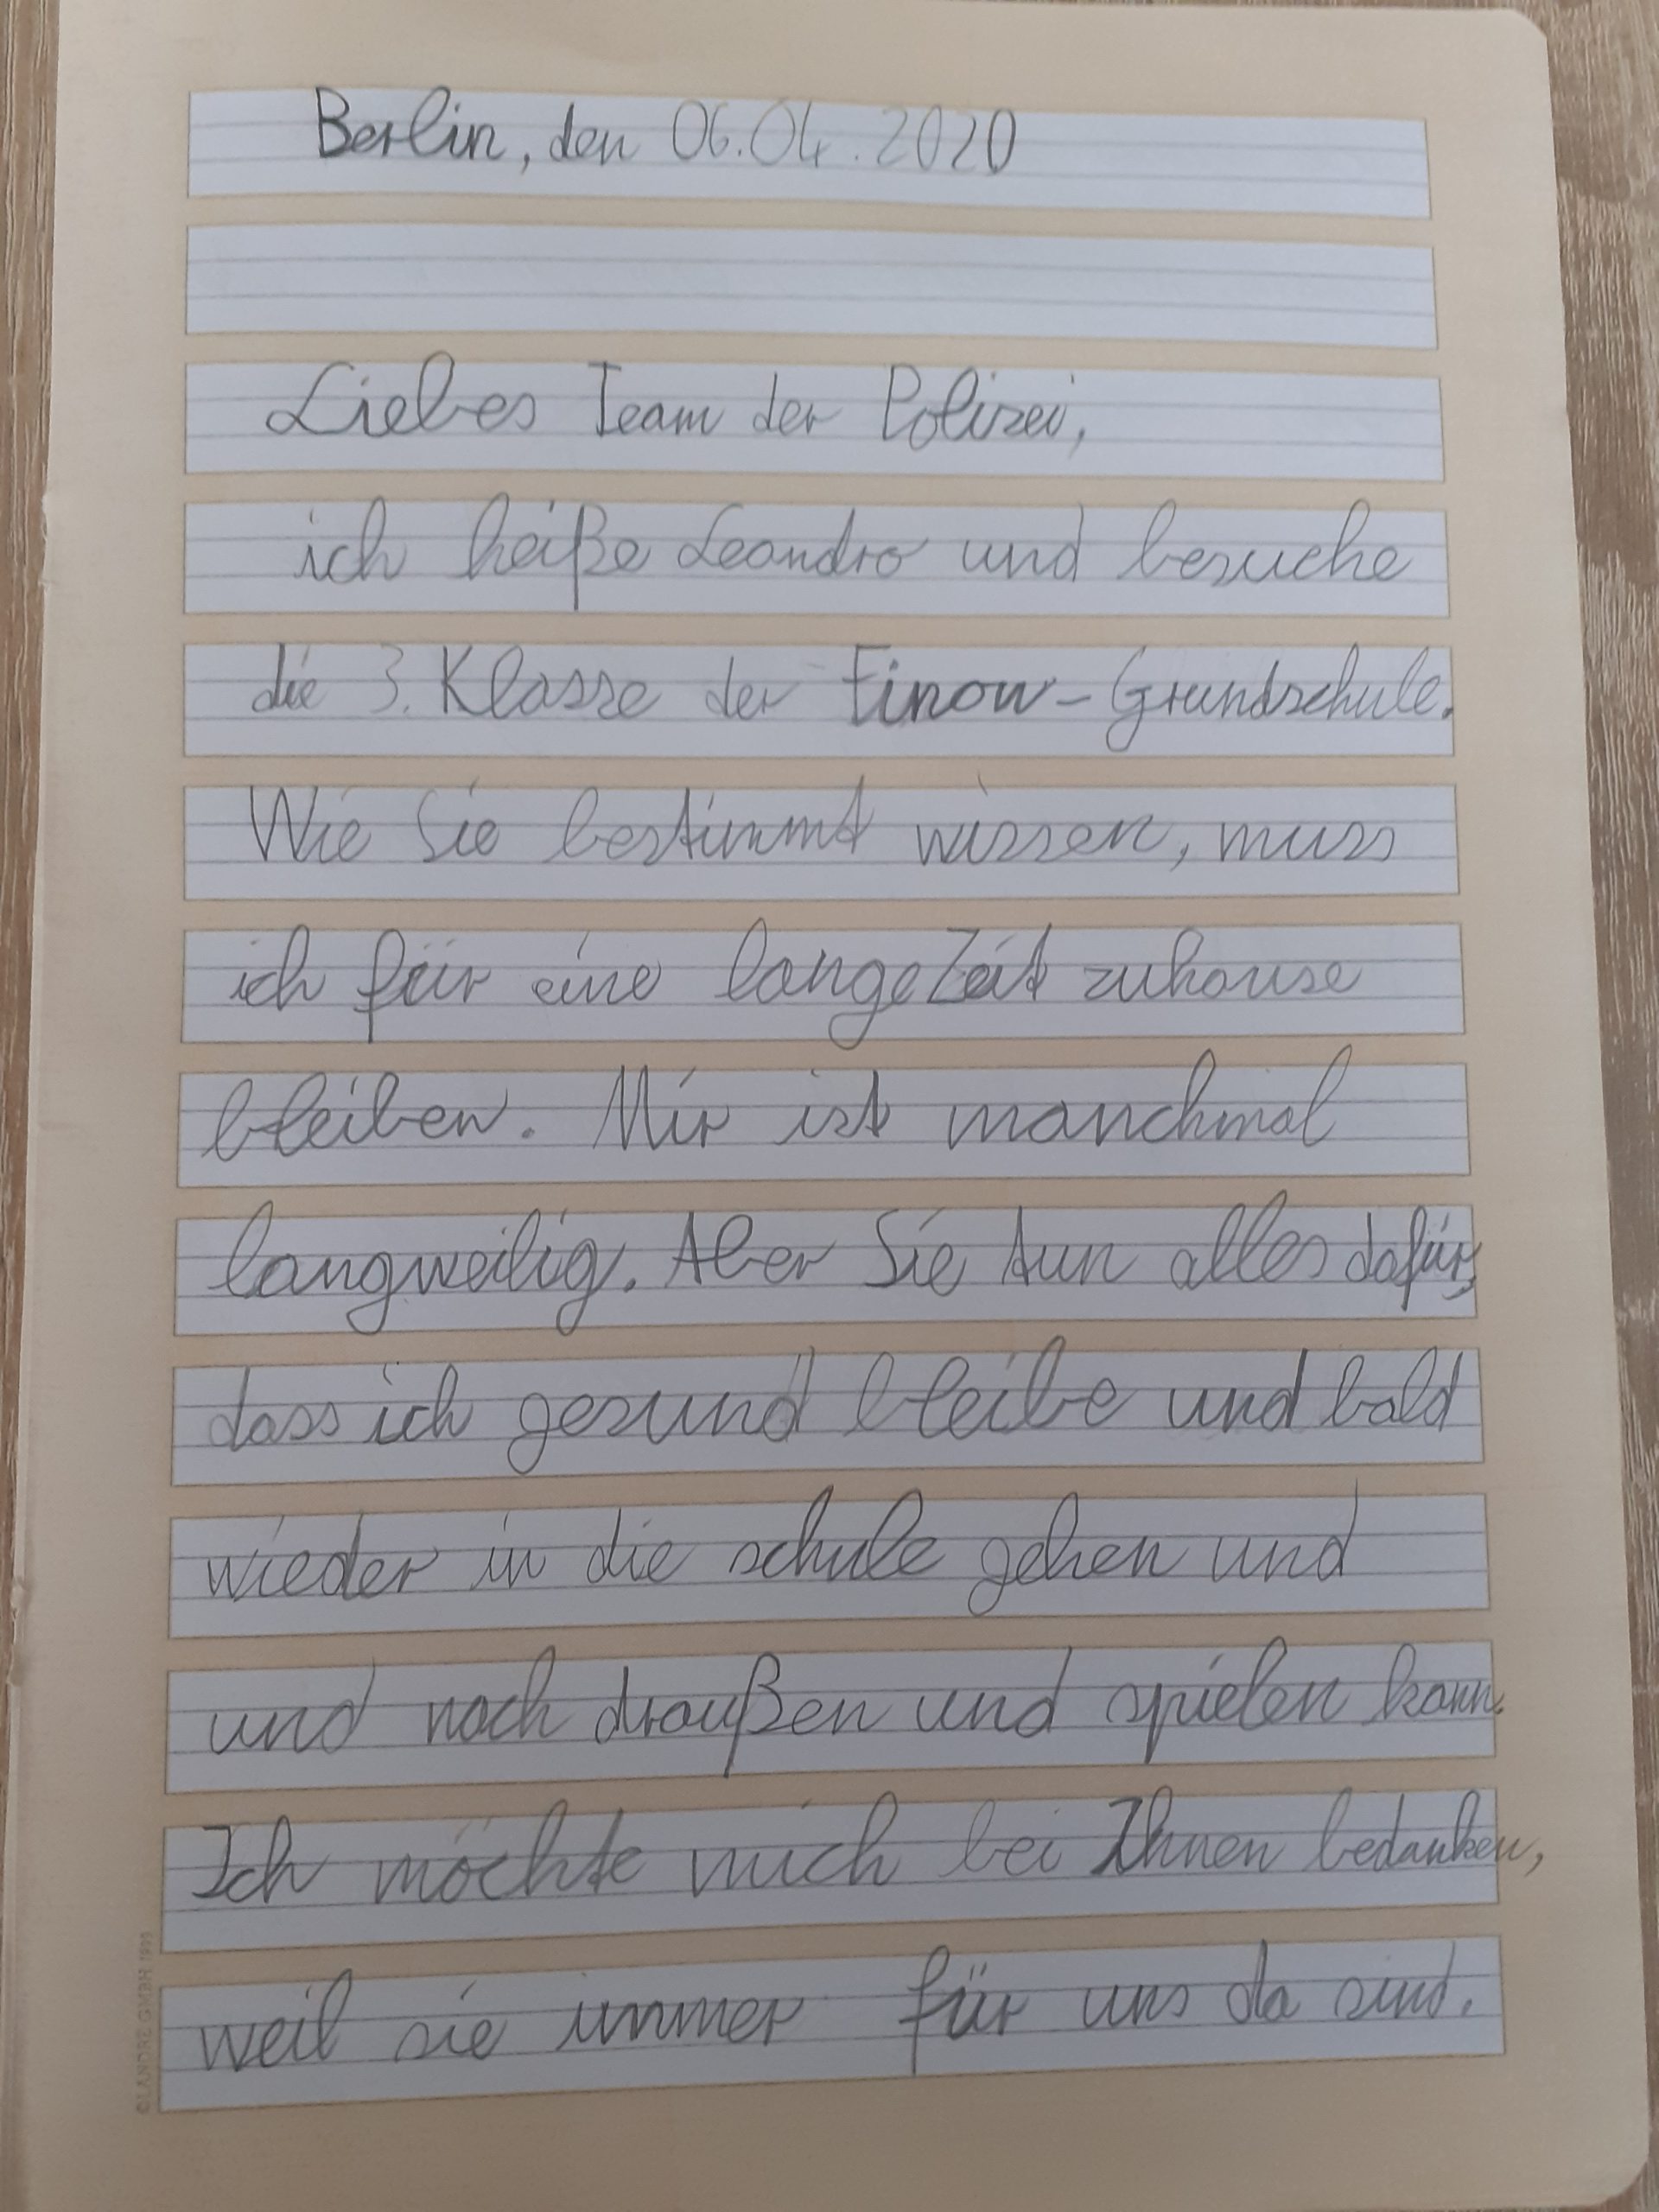 Berlin, den 06.04.2020
Liebes Team der Polizei,
ich heiße Leandro und besuche
die 3. Klasse der Finow-Grundschule.
Wie Sie bestimmt wissen, muss
ich für eine lange Zeit zuhause
bleiben. Mir ist manchmal
langweilig. Aber Sie tun alles dafür,
dass ich gesund bleibe und bald
wieder in die schule gehen und
und nach draußen und spielen kann.
Ich möchte mich bei Ihnen bedanken,
weil sie immer für uns da sind.
©LANDRÉ GMBH 1995